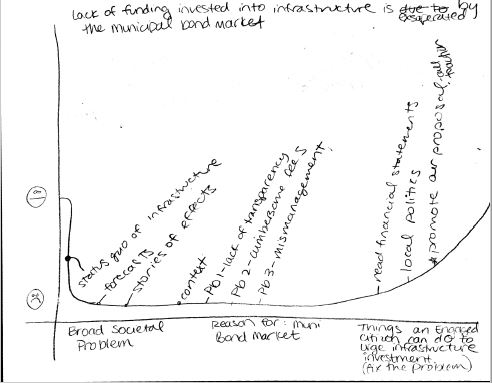 Lack of funding invested into infrastructure is due to exasperated by
the municipal bond market
status quo of infrastructure
- forecasts
- stories of effects
context
- Pb1 - lack of transparency
Pb2 - cumbersome fees
- Pb3 - mismanagement
- read financial statements
- local politics
* promote our proposal - call for
Broad Societal
Problem
Reason for: muni
Bond Market
Things an Engaged
citizen can do to
urge infrastructure
investment
(fix the problem)